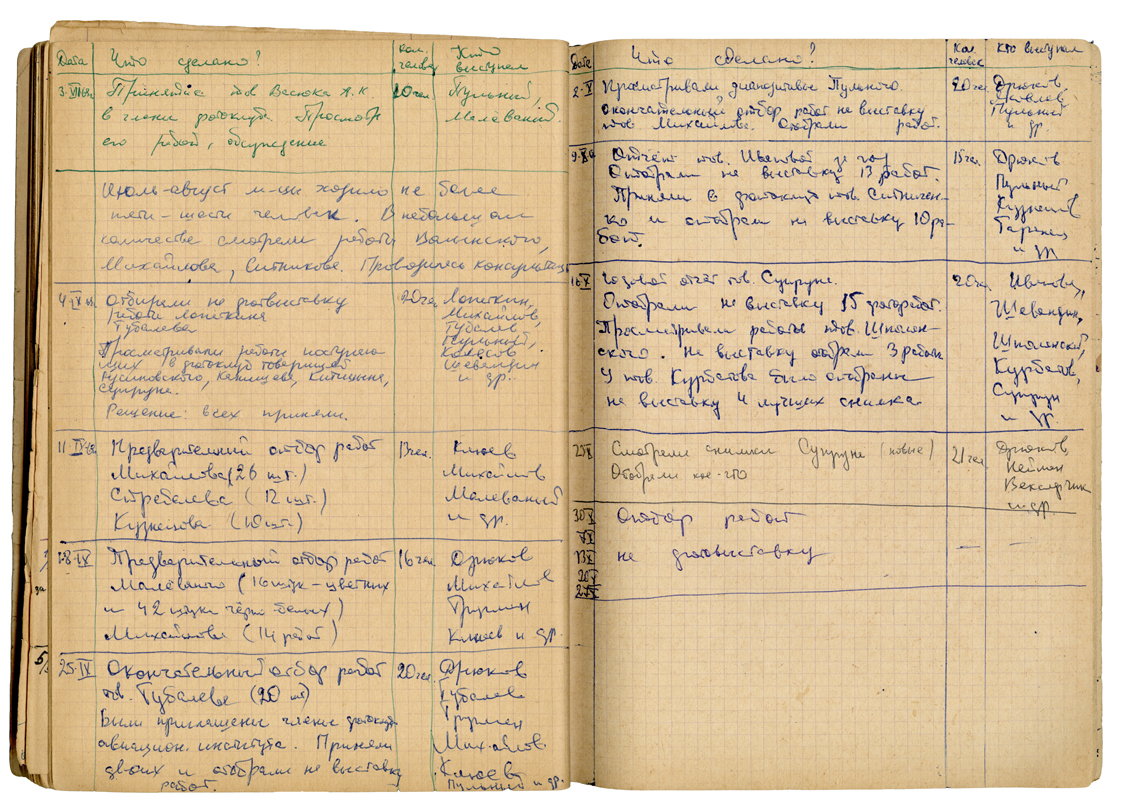 Дата
Что сделано?
Кол. человек
Кто выступал
Принятие тов Васюка А.К.
в члены фотоклуба Просмотр
его работ, обсуждение
20 чел.
Пульный,
Малёваный
Июль-август м-цы ходило не более
пяти-шести человек. В небольшом
количестве смотрели работы Волынского,
Михайлова, Ситникова. Проводились консультации
Отбирали на фотвыставку
работы Лопаткина
Губалева
Просматривали работы поступаю
щих в фотоклуб товарищей
Супруна.
Решение: всех приняли.
20 чел
Лопаткин,
Михайлов,
Губалев
Пульный,
Колесов
и др.
11 IX
Предварительный отбор работ
Михайлова (26 шт.)
Стребалева (12 шт.)
Кузнецова (10 шт.)
13 чел.
Клюев
Михайлов
Малеваный
и др.
18-IX
Предварительный отбор работ
Малёваного (16 штук - цветных
и 42 штуки чёрно белых)
Михайлова (14 работ)
16 чел
Дрюков
Михайлов
Клюев и др.
25-IX
Окончательный отбор работ
тов. Губалева (20 шт)
Были приглашены члены фотоклуб
авиацион. института. Приняли
двоих и отобрали на выставку
работ.
20 чел.
Дрюков
Губалева
Михайлов.
Клюев
Пульный и др.
Дата
Что сделано?
Кол. человек
Кто выступал
2-X
Просматривали диапозитивы Пульного.
окончательный отбор работ на выставку
тов Михайлова. Отобрали работ.
20 чел
Дрюков,
Яковлев
Пульный
и др.
9-X
Отчёт тов. Ивановой за год
Отобрали на выставку 13 работ.
Приняли в фотоклуб тов. Ситничен-
ко и отобрали на выставку 10 ра-
бот.
15 чел.
Дрюков
Пульный
Кузнецов
и др
16 X
Годовой отчёт тов. Супруна.
Отобрали на выставку 15 фоторабот.
Просматривали работы тов. Шполян-
ского. На выставку отобрали 3 работы
У тов. Курбатова было отобрано
на выставку 4 лучших снимка
Иванова,
Шевандин,
Шполянский,
Курбатов,
Супрун
и др
23 X
Смотрели снимки Супруна (новые)
Отобрали кое-что
21 чел
Дрюков,
Нейман
Векслерчик
и др.
30 X
Отбор работ
на фотовыставку
— —